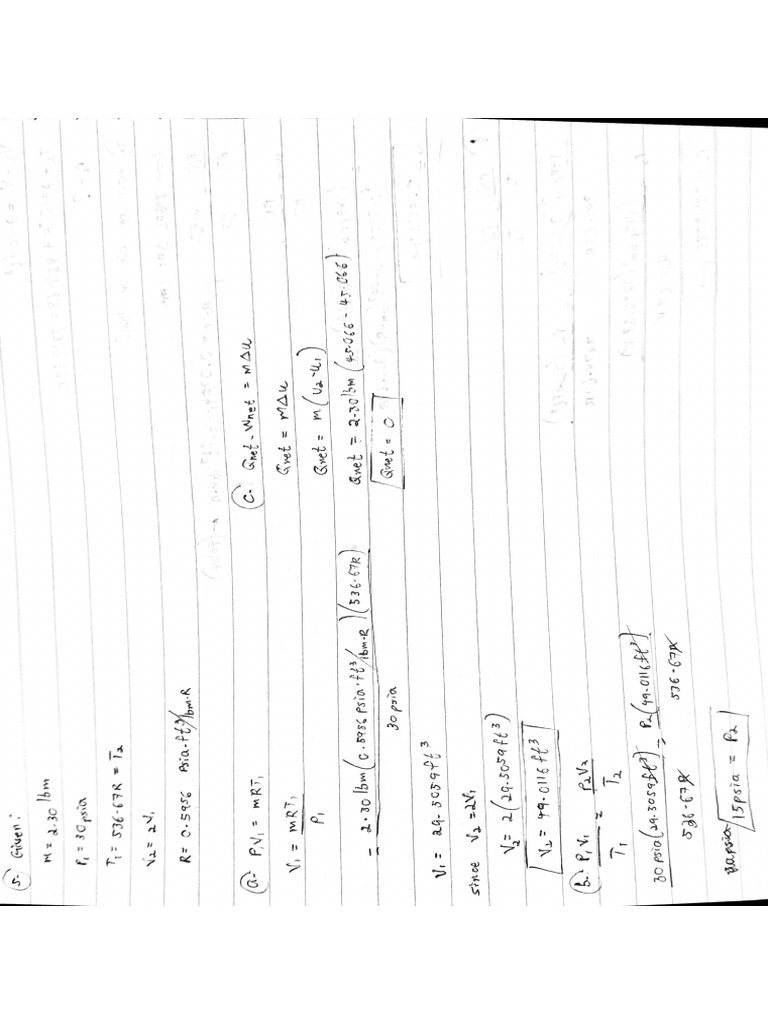 5. Given:
M = 2.30 lbm
P₁ = 30 psia
T₁ = 536.67R = T₂
V₂ = 2V₁
R = 0.5956 Psia.ft³/lbm.R
a. P₁V₁ = mRT₁
V₁ = mRT₁
P₁
= 2.30 lbm (0.5956 Psia.ft³/lbm.R) (536.67R)
30 psia
V₁ = 29.5059 ft³
since V₂ = 2V₁
V₂ = 2(29.5059 ft³)
V₂ = 49.0116 ft³
b. P₁V₁ = P₂V₂
T₁ T₂
30 psia (29.5059 ft³) = P₂ (49.0116 ft³)
536.67R 536.67R
15 psia = P₂
c. Qnet - Wnet = MΔu
Qnet = MΔu
Qnet = m (U₂ - U₁)
Qnet = 2.30 lbm (45.066 - 45.066)
Qnet = 0